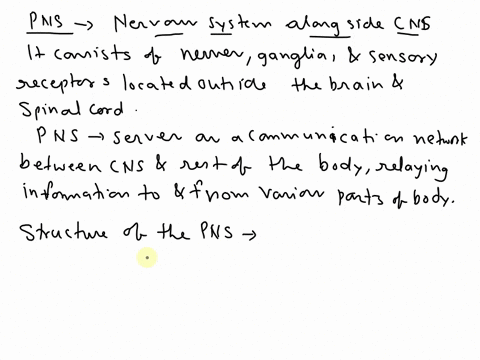 PNS → Nervous system along side CNS
It consists of nerves, ganglia, & sensory
receptors located outside the brain &
Spinal cord.
PNS → Server as a communication network
between CNS & rest of the body, relaying
information to & from various parts of body.
Structure of the PNS →